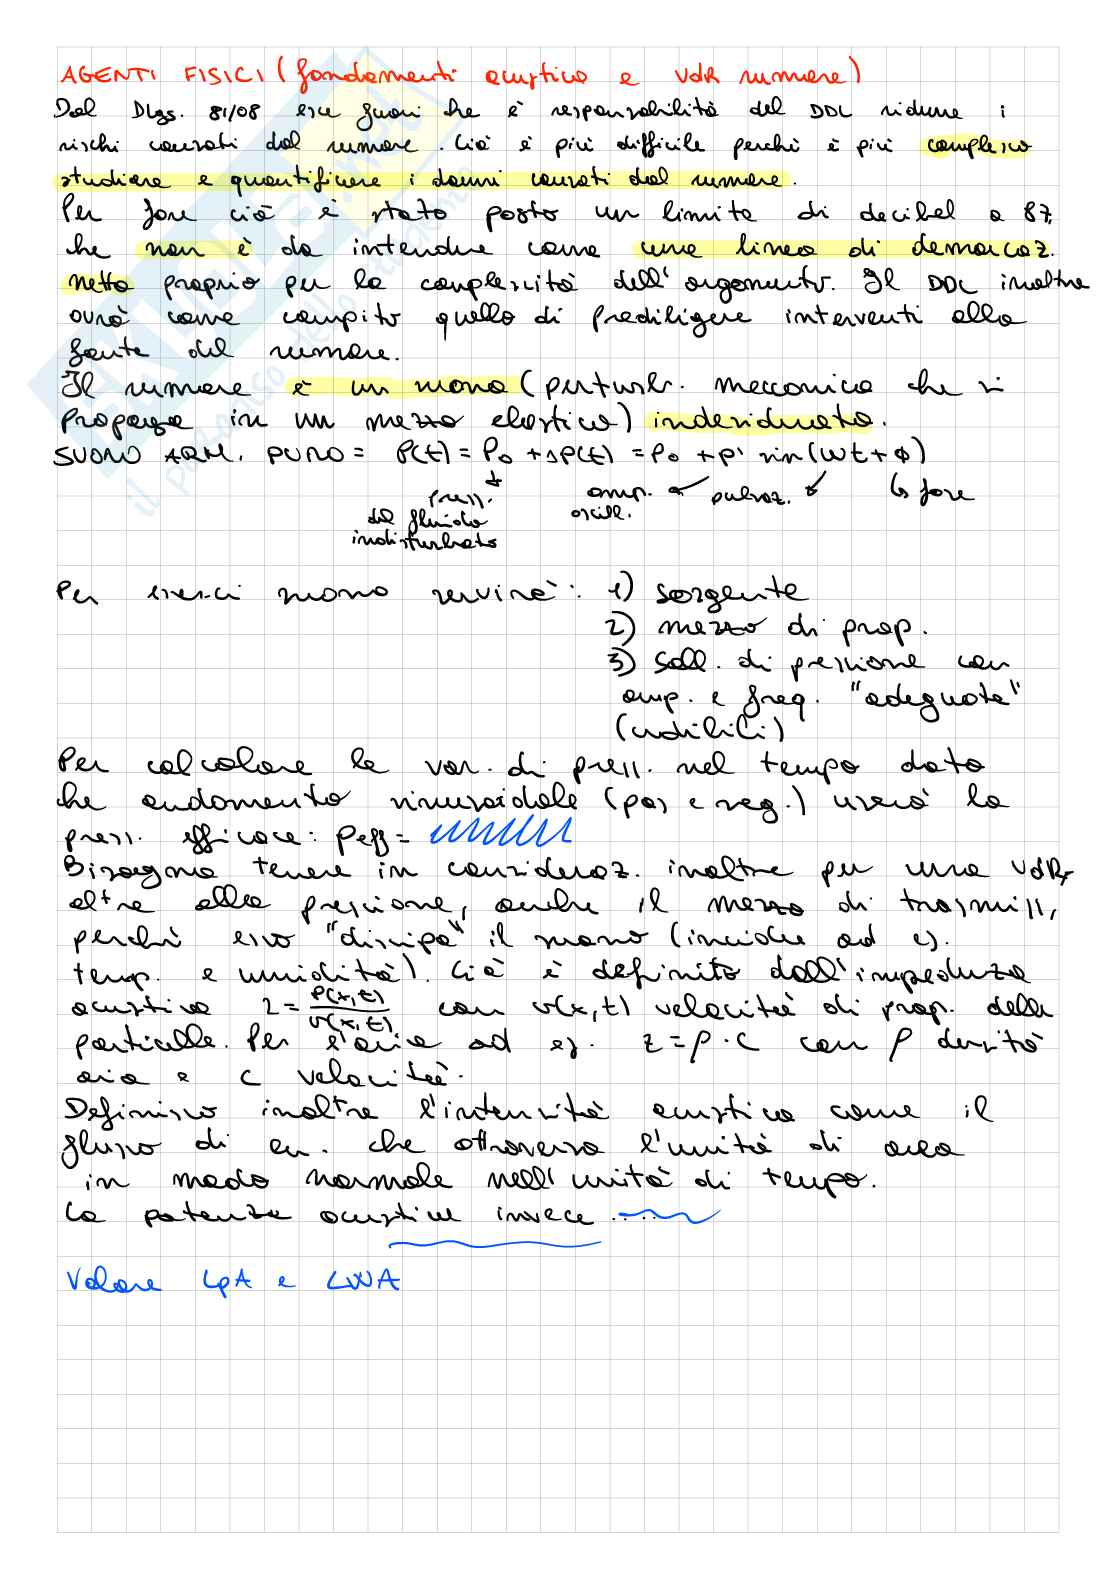 AGENTI FISICI (fondamenti acustica e VdR rumore)
Dal Dlgs. 81/08 esce fuori che è responsabilità del DDL ridurre i
rischi causati dal rumore. Ciò è più difficile perchè è più complesso
studiare e quantificare i danni causati dal rumore.
Per fare ciò è stato posto un limite di decibel a 87,
che non è da intendere come una linea di demarcaz.
netta proprio per la complessità dell'argomento. Il DDL inoltre
avrà come compito quello di prediligere interventi alla
fonte del rumore.
Il rumore è un suono (perturb. meccanica che si
propaga in un mezzo elastico) indesiderato.
SUONO ARM. PURO = P(t) = P₀ + ΔP(t) = P₀ + p' sin(ωt + φ)
press. amp. pulsaz. ↳ fase
del fluido oscill.
indisturbato
Per esserci suono servirà: 1) sorgente
2) mezzo di prop.
3) Soll. di pressione con
amp. e freq. "adeguate"
(udibili)
Per calcolare la var. di press. nel tempo dato
che andamento sinusoidale (pos e neg.) userò la
press. efficace: Peff =
Bisogna tenere in consideraz. inoltre per una VdR,
oltre alla pressione, anche il mezzo di trasmiss,
perchè esso "dissipa" il suono (incide ad es.
temp. e umidità). Ciò è definito dall'impedenza
acustica z = P(x,t)/v(x,t) con v(x,t) velocità di prop. delle
particelle. Per l'aria ad es. z = ρ · c con ρ densità
aria e c velocità.
Definisco inoltre l'intensità acustica come il
flusso di en. che attraversa l'unità di area
in modo normale nell'unità di tempo.
La potenza acustica invece ....
Valore LpA e LWA
il paradiso dello